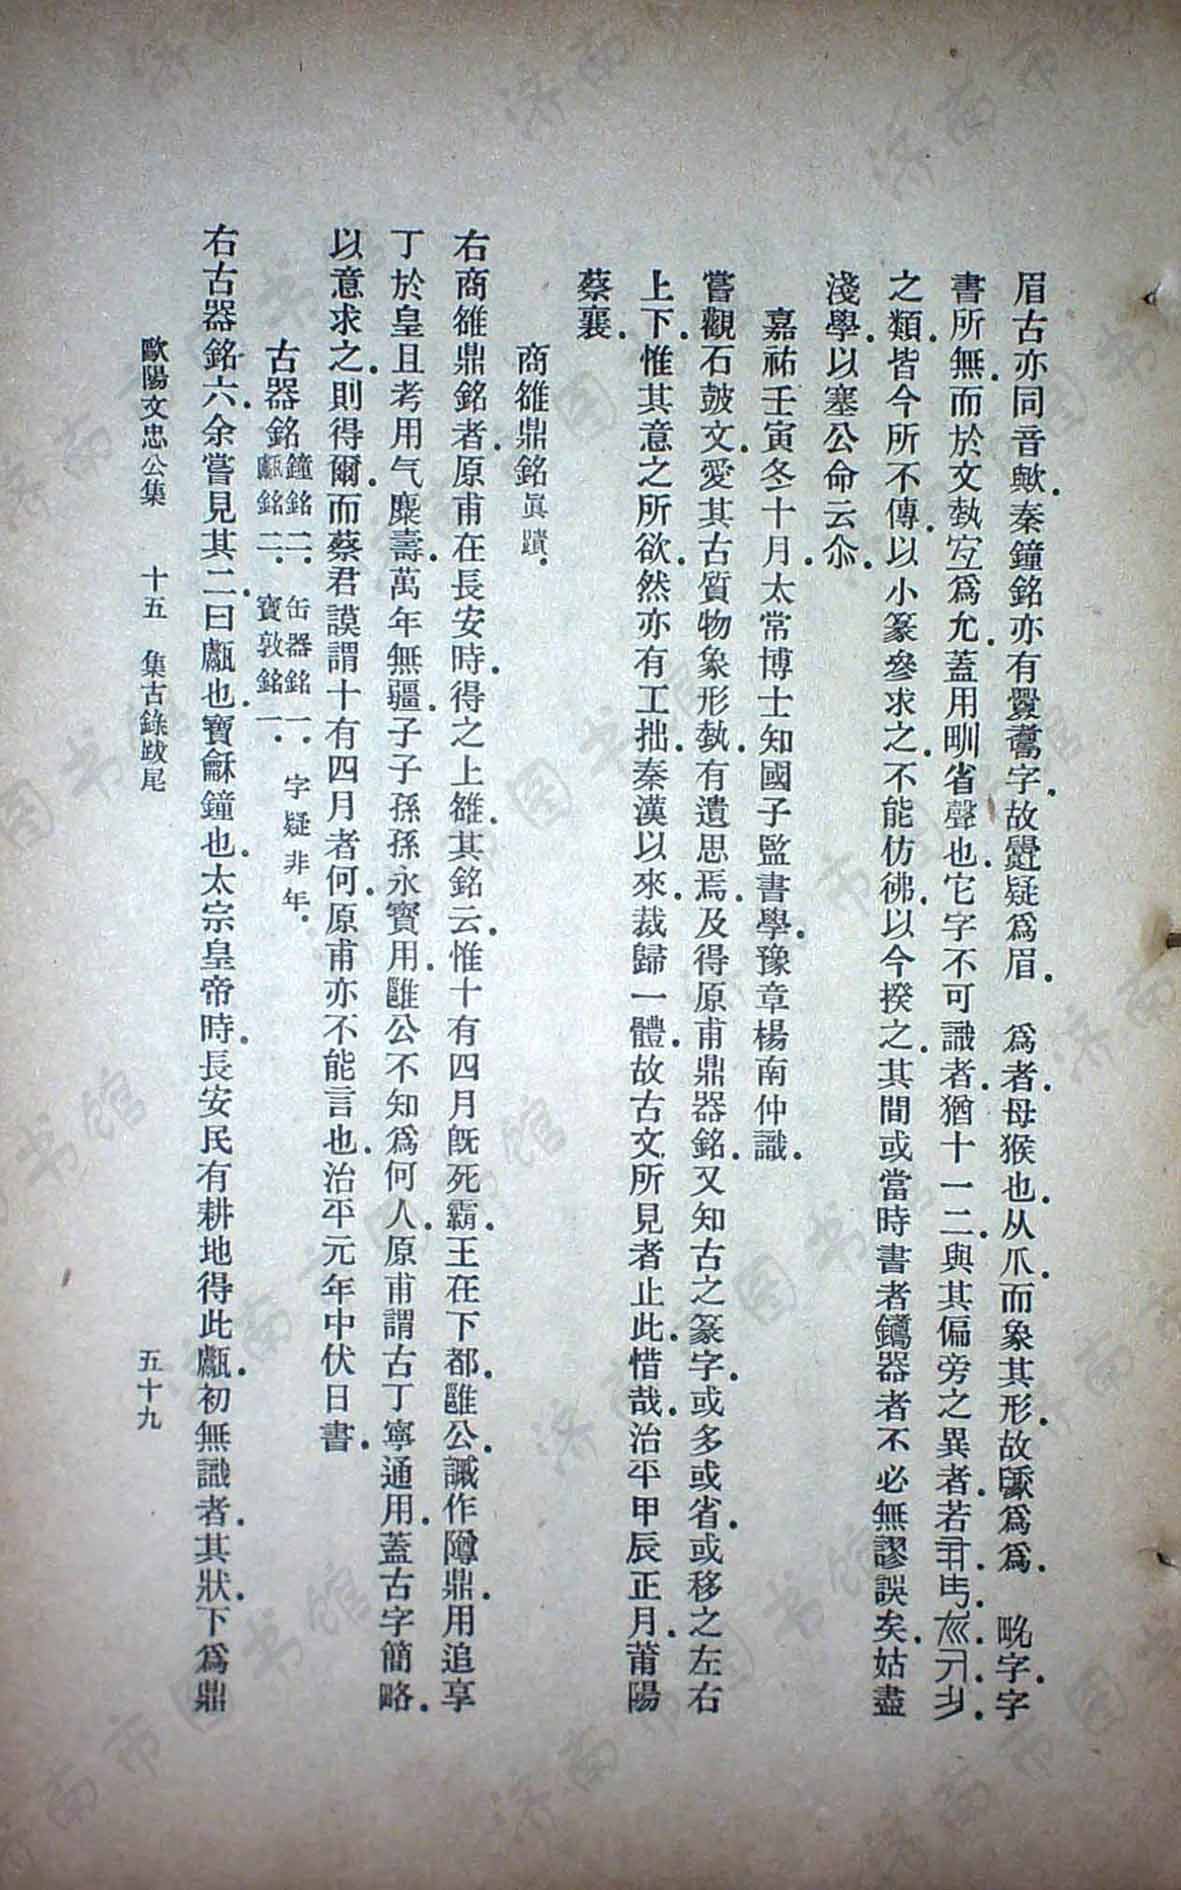 眉古亦同音歟秦鐘銘亦有字故疑爲眉 爲者母猴也从爪而象其形故爲爲 畯字字
書所無而於文埶宐爲允蓋用畎省聲也它字不可識者猶十一二與其偏旁之異者若
之類皆今所不傳以小篆參求之不能仿彿以今揆之其間或當時書者鑄器者不必無謬誤矣姑盡
淺學以塞公命云尒
嘉祐壬寅冬十月太常博士知國子監書學豫章楊南仲識
嘗觀石皷文愛其古質物象形埶有遺思焉及得原甫鼎器銘又知古之篆字或多或省或移之左右
上下惟其意之所欲然亦有工拙秦漢以來裁歸一體故古文所見者止此惜哉治平甲辰正月莆陽
蔡襄
商雒鼎銘眞蹟
右商雒鼎銘者原甫在長安時得之上雒其銘云惟十有四月旣死霸王在下都雝公諴作隮鼎用追享
丁於皇且考用气麋壽萬年無疆子子孫孫永寳用雝公不知爲何人原甫謂古丁寧通用蓋古字簡略
以意求之則得爾而蔡君謨謂十有四月者何原甫亦不能言也治平元年中伏日書
古器銘 鐘銘二 缶器銘一 字疑非年
甗銘二 寶敦銘一
右古器銘六余嘗見其二曰甗也寶龢鐘也太宗皇帝時長安民有耕地得此甗初無識者其狀下爲鼎
歐陽文忠公集 十五 集古錄跋尾 五十九